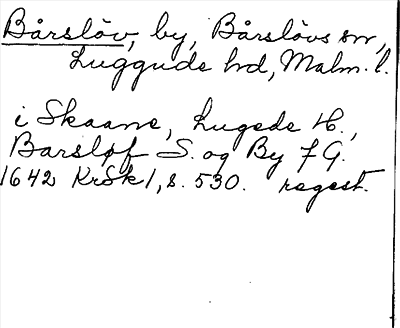 Bårslöv, by, Bårslövs sn,
Luggude hd, Malm. l.
i Skaane, Lugede H.,
Barsløf S. og By 7 G.
1642 KrSk 1, s. 530. regest.